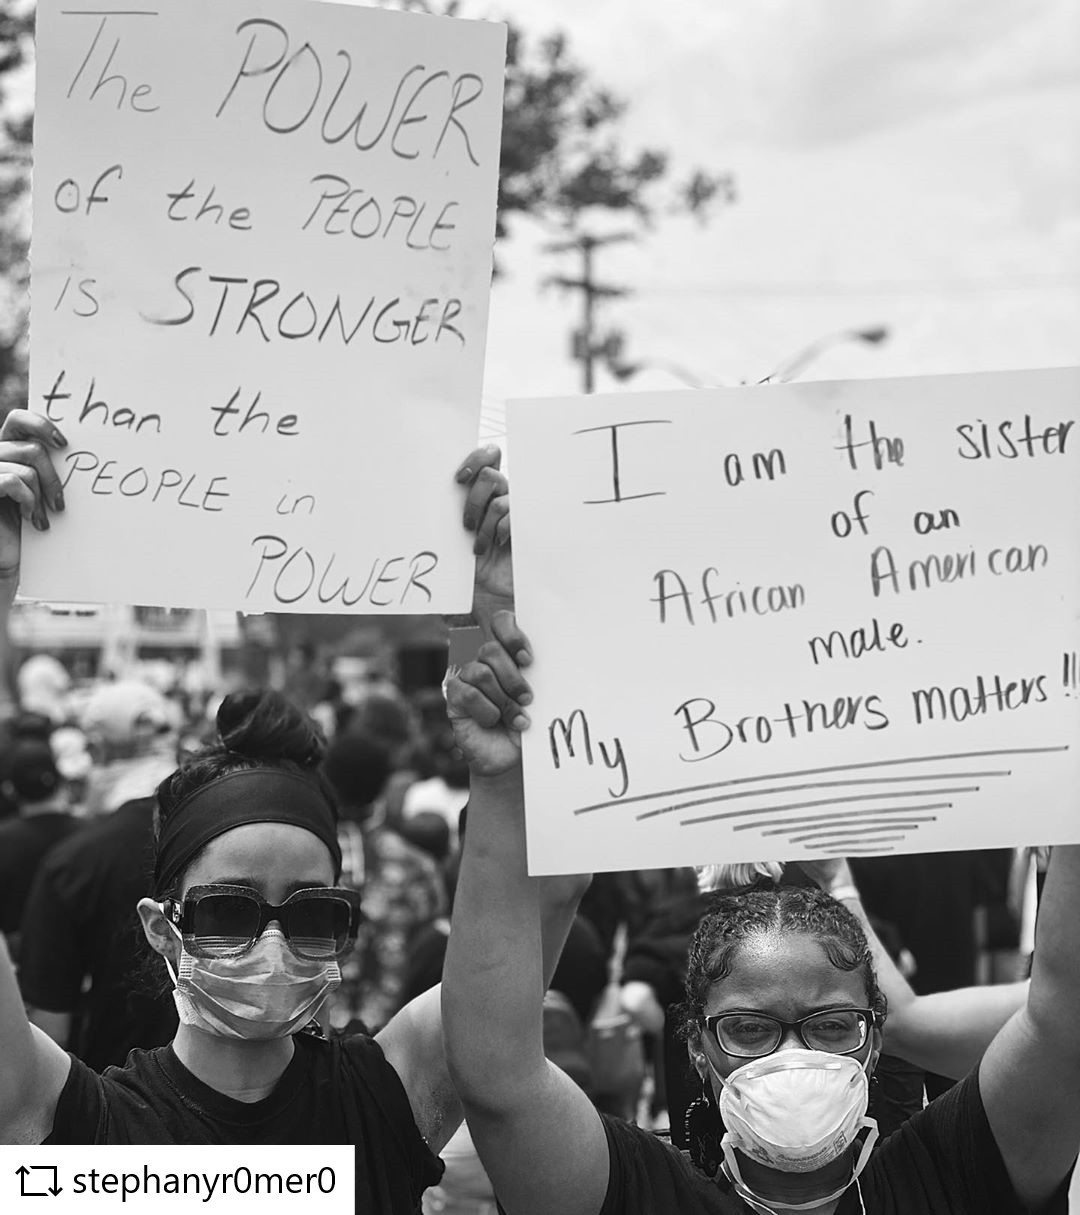 The POWER
of the PEOPLE
is STRONGER
than the
PEOPLE in
POWER
I am the sister
of an
African American
male.
My Brothers matters!!!
stephanyr0mer0